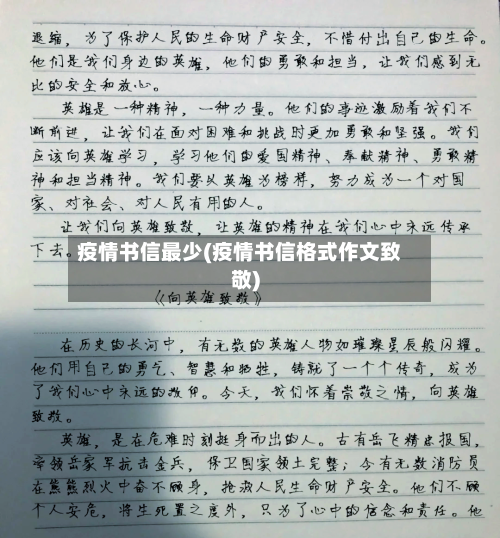 退缩，为了保护人民的生命财产安全，不惜付出自己的生命。
他们是我们身边的英雄，他们的勇敢和担当，让我们感到无
比的安全和放心。
英雄是一种精神，一种力量。他们的事迹激励着我们不
断前进，让我们在面对困难和挑战时更加勇敢和坚强。我们
应该向英雄学习，学习他们的爱国精神、奉献精神、勇敢精
神和担当精神。我们要以英雄为榜样，努力成为一个对国
家、对社会、对人民有用的人。
让我们向英雄致敬，让英雄的精神在我们心中永远传承
下去。
疫情书信最少(疫情书信格式作文致
敬)
《向英雄致敬》
在历史的长河中，有无数的英雄人物如璀璨星辰般闪耀。
他们用自己的勇气、智慧和牺牲，铸就了一个个传奇，成为
了我们心中永远的敬仰。今天，我们怀着崇敬之情，向英雄
致敬。
英雄，是在危难时刻挺身而出的人。古有岳飞精忠报国，
率领岳家军抗击金兵，保卫国家领土完整；今有无数消防员
在熊熊烈火中奋不顾身，抢救人民生命财产安全。他们不顾
个人安危，将生死置之度外，只为了心中的信念和责任。他